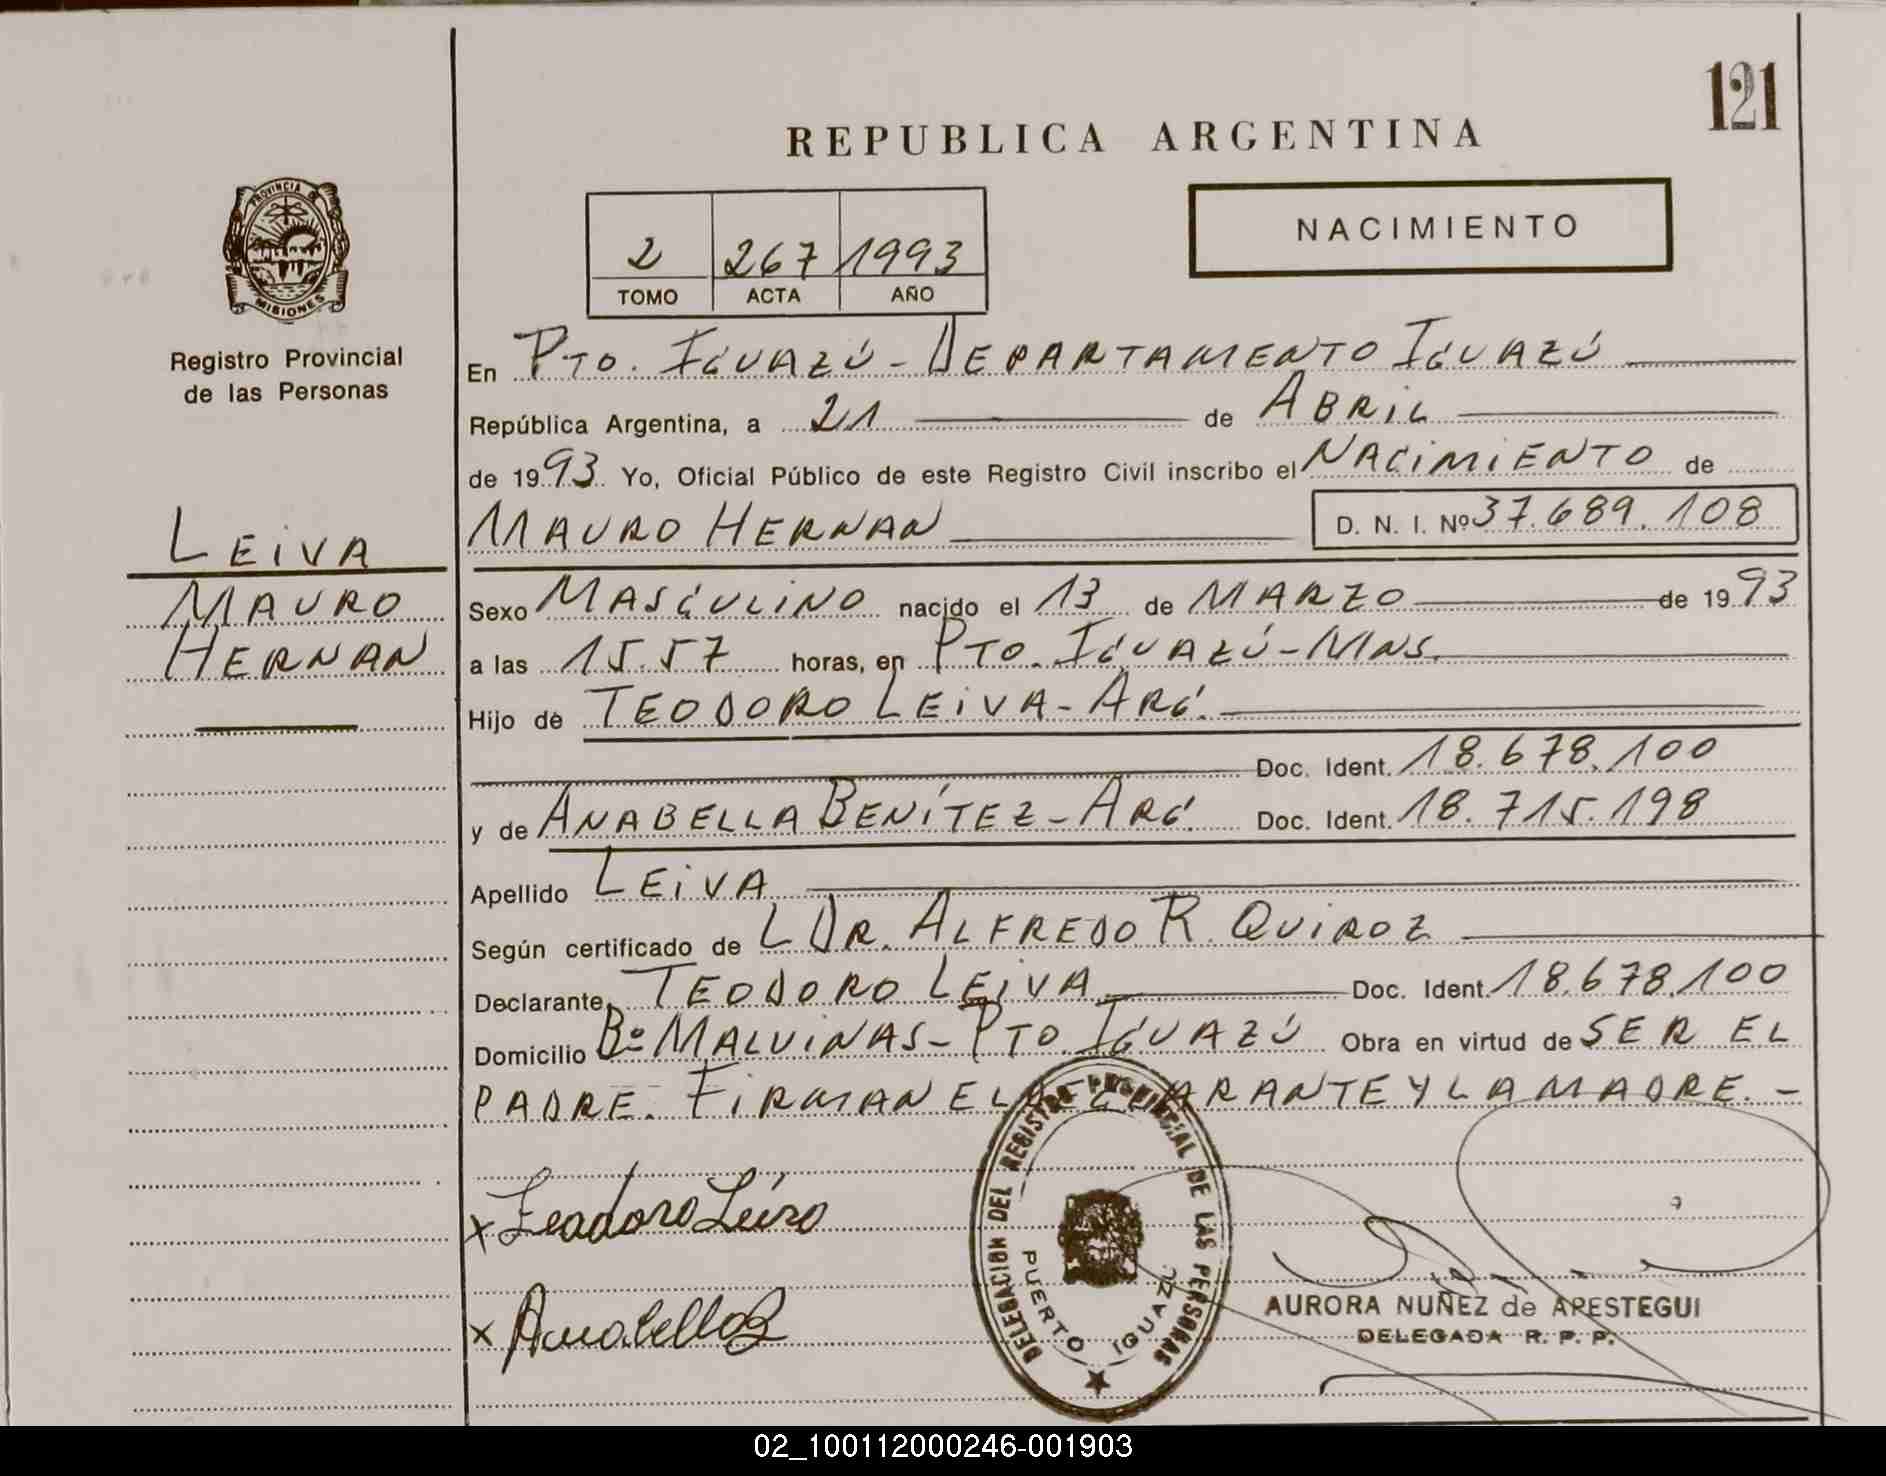 121
REPUBLICA ARGENTINA
PROVINCIA DE
MISIONES
Registro Provincial
de las Personas
2 267 1993
TOMO ACTA AÑO
NACIMIENTO
En PTO. IGUAZÚ - DEPARTAMENTO IGUAZÚ
República Argentina, a 21 de ABRIL
de 1993 Yo, Oficial Público de este Registro Civil inscribo el NACIMIENTO de
MAURO HERNAN D. N. I. Nº 37.689.108
LEIVA
MAURO
HERNAN
Sexo MASCULINO nacido el 13 de MARZO de 1993
a las 15.57 horas, en PTO. IGUAZÚ - MNS.
Hijo de TEODORO LEIVA - ARG.
Doc. Ident. 18.678.100
y de ANABELLA BENÍTEZ - ARG. Doc. Ident. 18.715.198
Apellido LEIVA
Según certificado de L DR. ALFREDO R. QUIROZ
Declarante TEODORO LEIVA Doc. Ident. 18.678.100
Domicilio Bº MALVINAS - PTO. IGUAZÚ Obra en virtud de SER EL
PADRE. FIRMAN EL DECLARANTE Y LA MADRE. -
x Teodoro Leiva
x Anabella B
DELEGACION DEL REGISTRO PROVINCIAL DE LAS PERSONAS
PUERTO IGUAZU
AURORA NUÑEZ de ARESTEGUI
DELEGADA R. P. P.
02_100112000246-001903